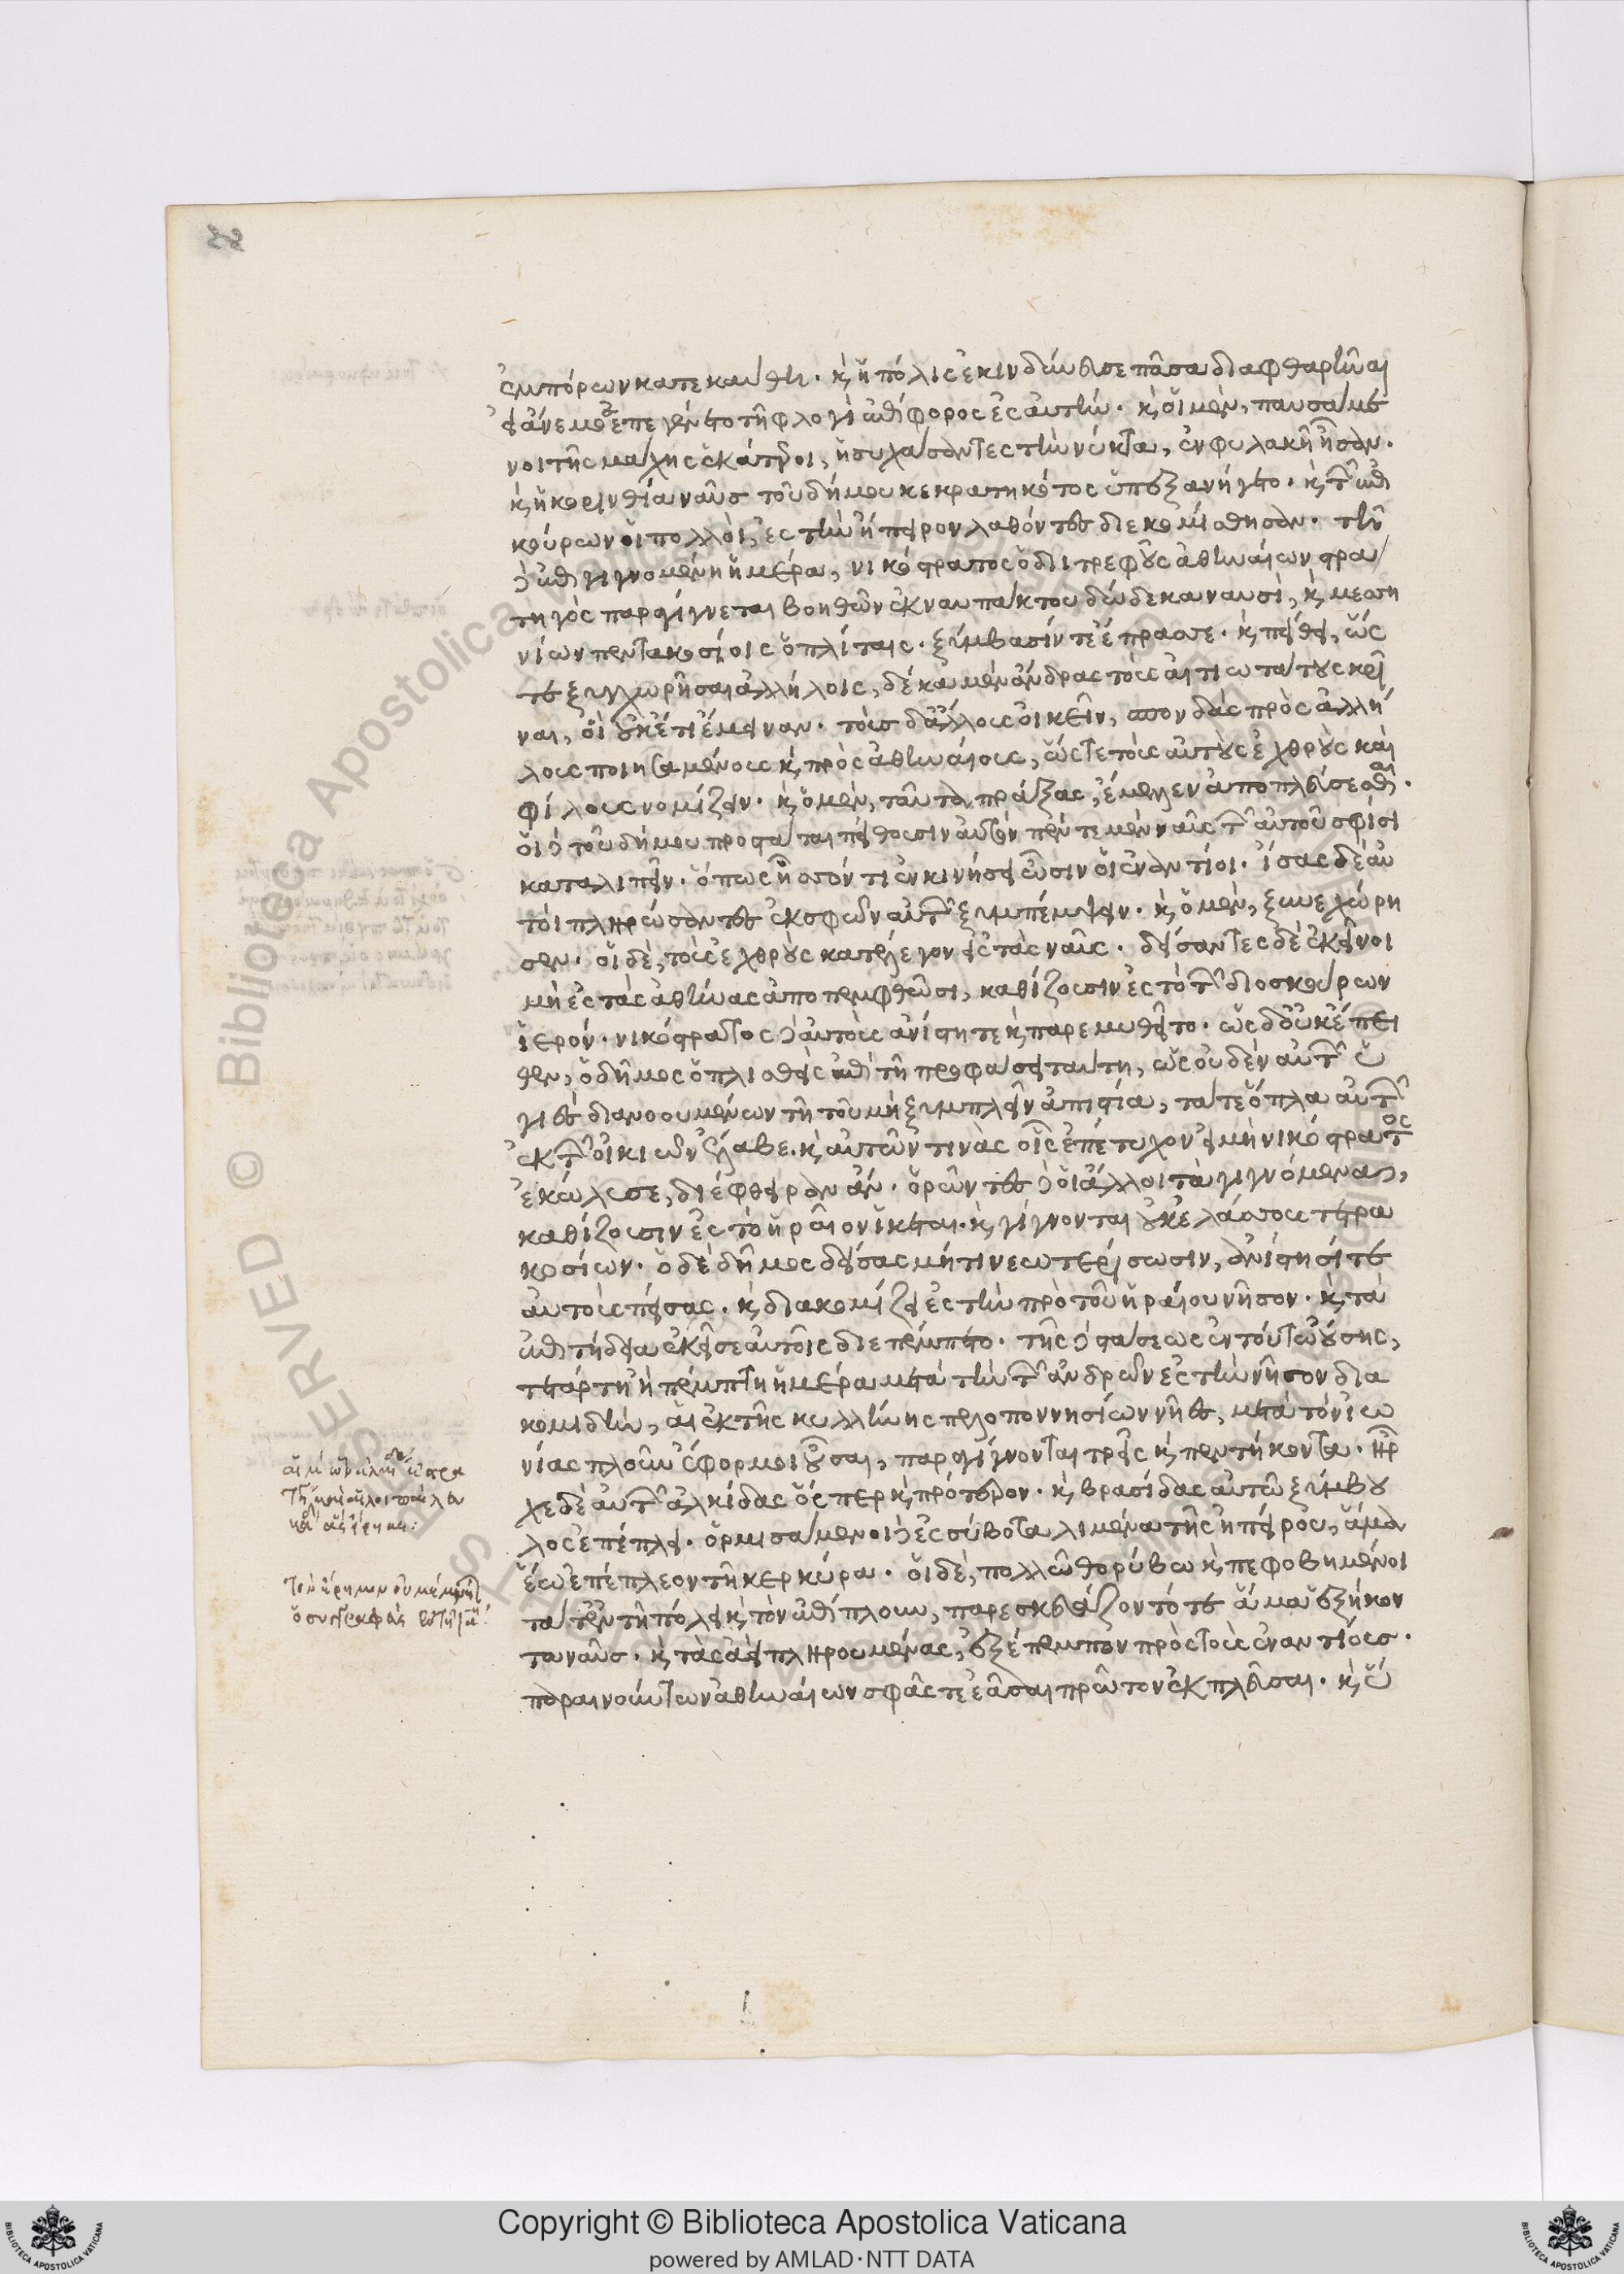 ἐμπόρων κατεκαύθη. καὶ ἡ πόλις ἐκινδύνευσε πᾶσα διαφθαρῆναι
εἰ ἄνεμος ἐπεγένετο τῇ φλογὶ ἐπίφορος ἐς αὐτήν. καὶ οἱ μὲν, παυσάμε
νοι τῆς μάχης ἑκάτεροι, ἡσυχάσαντες τὴν νύκτα, ἐν φυλακῇ ἦσαν.
καὶ ἡ κορινθία ναῦσ τοῦ δήμου κεκρατηκότος ὑπεξανήγετο. καὶ τῶν ἐπι
κούρων οἱ πολλοὶ, ἐς τὴν ἤπειρον λαθόντες διεκομίσθησαν. τῆ
δὲ ἐπιγιγνομένη ἡμέρα, νικόστρατος ὁ διιτρεφοῦς ἀθηναίων στρα
τηγὸς παραγίγνεται βοηθῶν ἐκ ναυπάκτου δώδεκα ναυσὶ, καὶ μεσση
νίων πεντακοσίοις ὁπλίταις. ξύμβασίν τε ἔπρασσε. καὶ πείθει, ὥς
τε ξυγχωρῆσαι ἀλλήλοις, δέκα μὲν ἄνδρας τοὺς αἰτιωτάτους κρῖ
ναι, οἳ οὐκέτι ἔμειναν. τοὺσ δ' ἄλλους οἰκεῖν, σπονδὰς πρὸς ἀλλή
λους ποιησαμένους καὶ πρὸς ἀθηναίους, ὥςτε τοὺς αὐτοὺς ἐχθροὺς καὶ
φίλους νομίζειν. καὶ ὁ μὲν, ταῦτα πράξας, ἔμελλεν ἀποπλεύσεσθαι.
οἱ δὲ τοῦ δήμου προστάται πείθουσιν αὐτὸν πέντε μὲν ναῦς τῶν αὐτοῦ σφίσι
καταλιπεῖν. ὅπως ἧσσόν τι ἐν κινήσει ὦσιν οἱ ἐναντίοι. ἴσας δὲ αὐ
τοὶ πληρώσαντες ἐκ σφῶν αὐτῶν ξυμπέμψειν. καὶ ὁ μὲν, ξυνεχώρη
σεν. οἱ δὲ, τοὺς ἐχθροὺς κατέλεγον ἐς τὰς ναῦς. δείσαντες δὲ ἐκεῖνοι
μὴ ἐς τὰς ἀθήνας ἀποπεμφθῶσι, καθίζουσιν ἐς τὸ τῶν διοσκούρων
ἱερόν. νικόστρατος δὲ αὐτοὺς ἀνίστη τε καὶ παρεμυθεῖτο. ὡς δ' οὐκ ἔπει
θεν, ὁ δῆμος ὁπλισθεὶς ἐπὶ τῆ προφάσει ταύτη, ὡς οὐδὲν αὐτῶν ὑ
γιὲς διανοουμένων τῆ τοῦ μὴ ξυμπλεῖν ἀπιστία, τά τε ὅπλα αὐτῶν
ἐκ τῶν οἰκιῶν ἔλαβε. καὶ αὐτῶν τινὰς οἷς ἐπέτυχον εἰ μὴ νικόστρατος
ἐκώλυσε, διέφθειραν ἄν. ὁρῶντες δὲ οἱ ἄλλοι τὰ γιγνόμενα,
καθίζουσιν ἐς τὸ ἥραιον ἱκέται. καὶ γίγνονται οὐκ ἐλάσσους τετρα
κοσίων. ὁ δὲ δῆμος δείσας μή τι νεωτερίσωσιν, ἀνίστησί τε
αὐτοὺς πείσας. καὶ διακομίζει ἐς τὴν πρὸ τοῦ ἡραίου νῆσον. καὶ τὰ
ἐπιτήδεια ἐκεῖσε αὐτοῖς διεπέμπετο. τῆς δὲ στάσεως ἐν τούτω οὔσης,
τετάρτη ἢ πέμπτη ἡμέρα μετὰ τὴν τῶν ἀνδρῶν ἐς τὴν νῆσον δια
κομιδὴν, αἱ ἐκ τῆς κυλλήνης πελοποννησίων νῆες, μετὰ τὸν ἰω
νίας πλοῦν ἔφορμοι οὖσαι, παραγίγνονται τρεῖς καὶ πεντήκοντα. ἦρ
χε δὲ αὐτῶν ἀλκίδας ὅς περ καὶ πρότερον. καὶ βρασίδας αὐτῶ ξύμβου
λος ἐπέπλει. ὁρμισάμενοι δὲ ἐς σύβοτα λιμένα τῆς ἠπείρου, ἅμα
ἕω ἐπέπλεον τῆ κερκύρα. οἱ δὲ, πολλῶ θορύβω καὶ πεφοβημένοι
τά τ' ἐν τῆ πόλει καὶ τὸν ἐπίπλουν, παρεσκευάζοντό τε ἅμα ἑξήκον
τα ναῦσ. καὶ τὰς ἀεὶ πληρουμένας, ἐξέπεμπον πρὸς τοὺς ἐναντίουσ.
παραινούντων ἀθηναίων σφᾶς τε ἐᾶσαι πρῶτον ἐκπλεῦσαι. καὶ ὕ